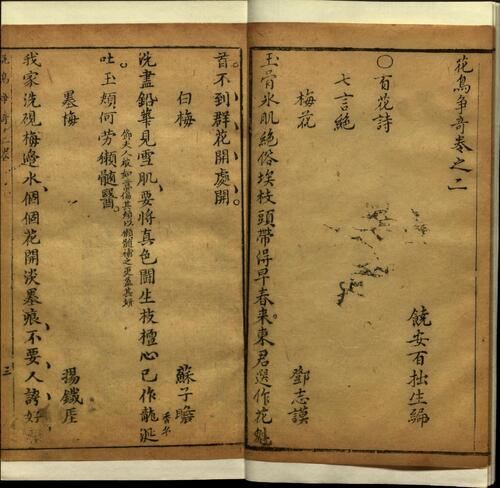 花鳥争奇卷之二
饒安百拙生編
○百花詩
七言絶
梅花 鄧志謨
玉骨氷肌絶俗埃枝頭帶得早春来東君選作花魁
首不到群花開處開
白梅 蘇子瞻
洗盡鉛華見雪肌要將真色鬪生枝檀心已作龍涎香名
吐玉頰何勞獺髓醫
墨梅 楊鐵厓
我家洗硯梅邊水個個花開淡墨痕不要人誇好
三